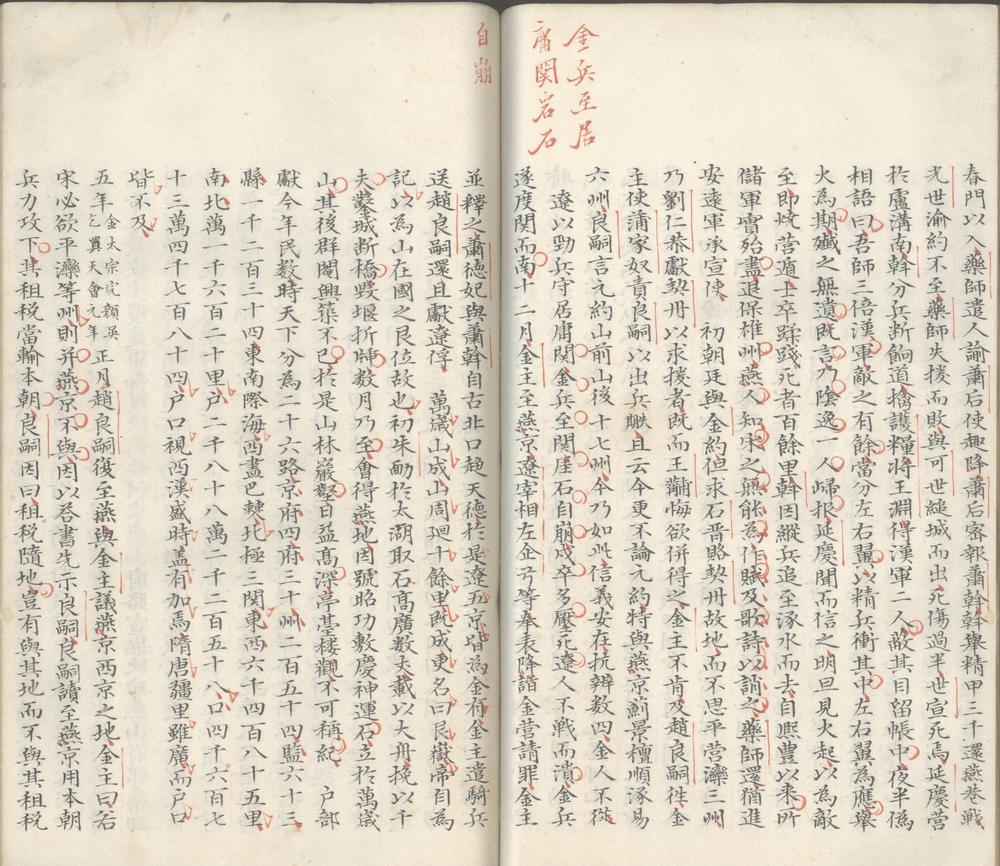 金兵至居
庸関岩石
自崩
春門以入藥師遣人諭蕭后使趣降蕭后密報蕭幹幹舉精甲三千還燕巷戰
光世渝約不至藥師失援而敗與可世縋城而出死傷過半世宣死焉延慶營
於盧溝南幹分兵断餉道擒護糧将王淵得漢軍二人蔽其目留帳中夜半偽
相語曰吾師三倍漢軍敵之有餘當分左右翼以精兵衝其中左右翼為應舉
火為期殲之無遺既言乃陰逸一人歸报延慶聞而信之明旦見火起以為敵
至即焼营遁士卒蹂踐死者百餘里幹因縱兵追至涿水而去自熈豊以来所
儲軍實殆盡退保雄州燕人知宋之無能為作賦及歌詩以誚之藥師還猶進
安遠軍承宣使　初朝廷與金約但求石晋賂契丹故地而不思平营灤三州
乃劉仁恭獻契丹以求援者既而王黼悔欲併得之金主不肯及趙良嗣徃金
主使蒲家奴責良嗣以出兵㬹且云今更不論元約特與燕京薊景檀順涿易
六州良嗣言元約山前山後十七州今乃如此信義安在抗辨数四金人不從
　遼以勁兵守居庸関金兵至関厓石自崩戍卒多壓死遼人不戰而潰金兵
遂度関而南十二月金主至燕京遼宰相左企弓等奉表降詣金营請罪金主
並釋之蕭德妃與蕭幹自古北口趨天德於是遼五京皆為金有金主遣騎兵
送趙良嗣還且獻遼俘　萬歲山成山周廻十餘里既成更名曰艮嶽帝自為
記以為山在國之艮位故也初朱勔於太湖取石高廣数丈載以大舟挽以千
夫鑿城断橋毀堰折牐数月乃至會得燕地因號昭功敷慶神運石立於萬歲
山其後群閹興築不已於是山林巖壑日益髙深亭臺樓觀不可稱紀　户部
獻今年民数時天下分為二十六路京府四府三十州二百五十四監六十三
縣一千二百三十四東南際海西盡巴僰北極三関東西六千四百八十五里
南北萬一千六百二十里户二千八十八萬二千二百五十八口四千六百七
十三萬四千七百八十四户口視西漢盛時盖有加焉隋唐疆里雖廣而户口
皆不及
五年金太宗完顔吳乞買天會元年正月趙良嗣復至燕與金主議燕京西京之地金主曰若
宋必欲平灤等州則并燕京不與因以荅書先示良嗣良嗣讀至燕京用本朝
兵力攻下其租税當輸本朝良嗣因曰租税隨地豈有與其地而不與其租税